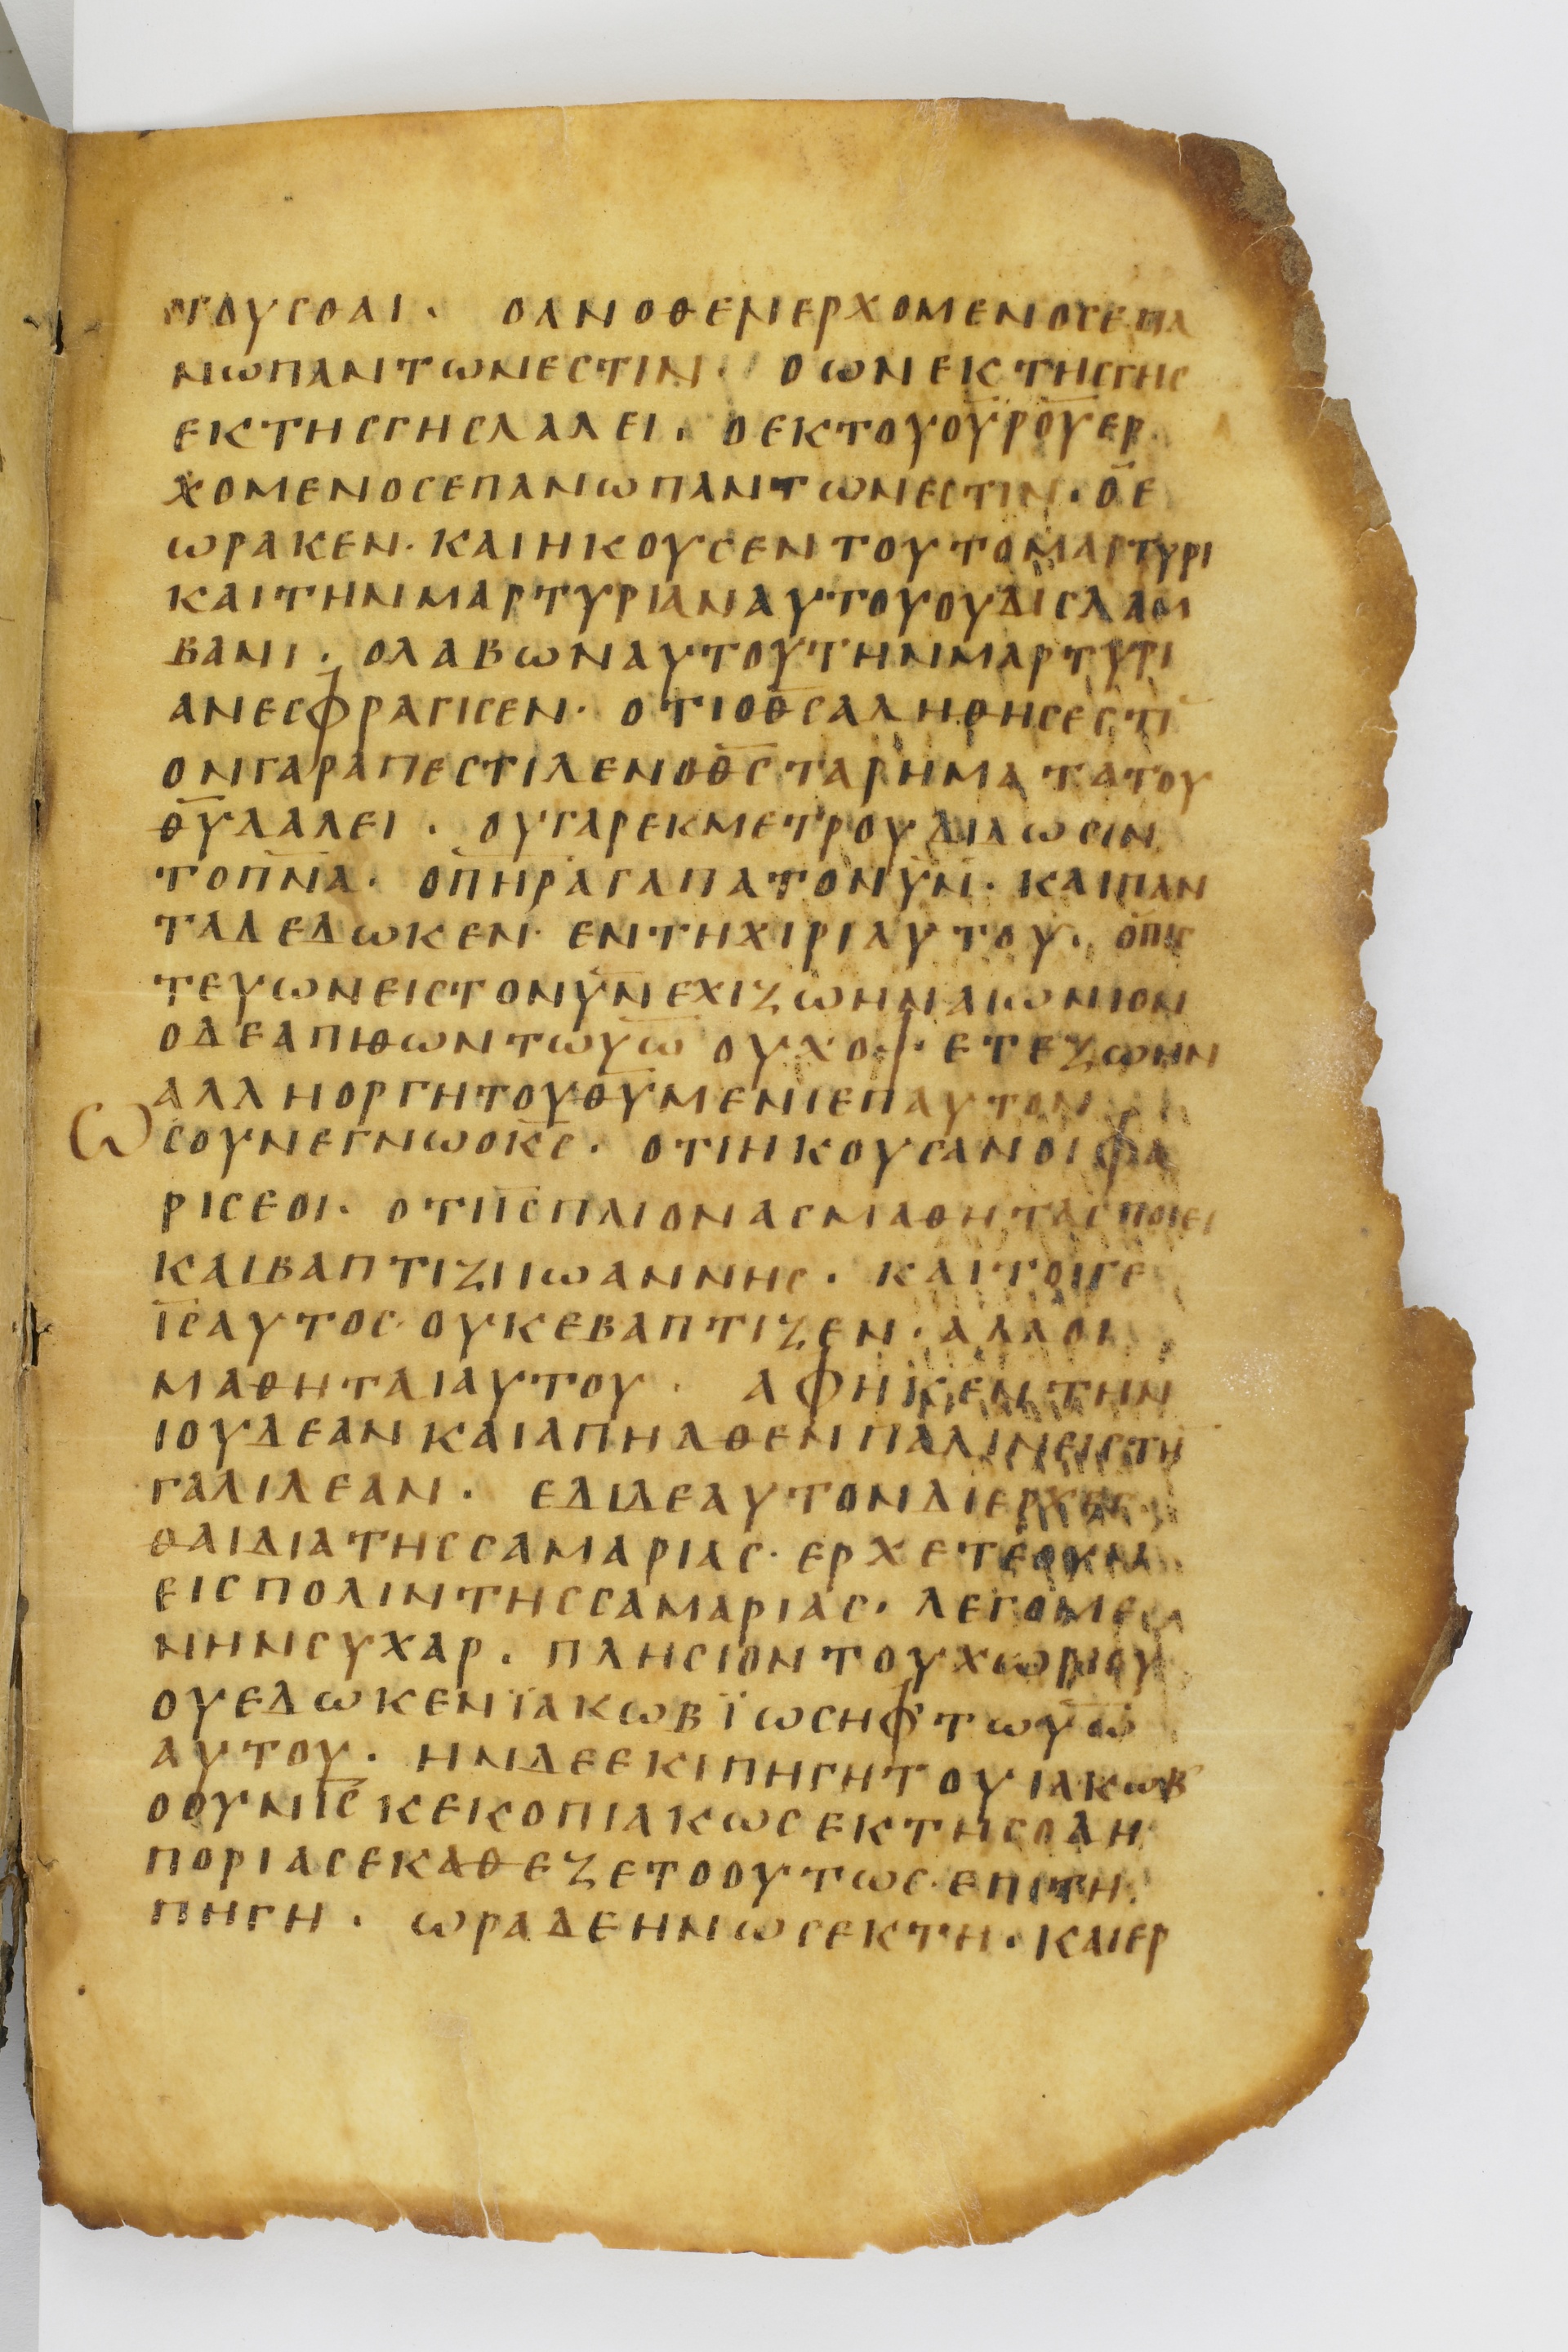 ϲΤΟΥϹΘΑΙ· ΟΑΝΟΘΕΝΕΡΧΟΜΕΝΟϹΕΠΑ
ΝΩΠΑΝΤΩΝΕϹΤΙΝ· ΟΩΝΕΚΤΗϹΓΗϹ
ΕΚΤΗϹΓΗϹΛΑΛΕΙ· ΟΕΚΤΟΥΟΥ̅ΡΟΥ̅ΕΡ
ΧΟΜΕΝΟϹΕΠΑΝΩΠΑΝΤΩΝΕϹΤΙΝ· ΟΕ
ΩΡΑΚΕΝ· ΚΑΙΗΚΟΥϹΕΝΤΟΥΤΟΜΑΡΤΥΡΙ
ΚΑΙΤΗΝΜΑΡΤΥΡΙΑΝΑΥΤΟΥΟΥΔΙϹΛΑΜ
ΒΑΝΙ· ΟΛΑΒΩΝΑΥΤΟΥΤΗΝΜΑΡΤΥΡΙ
ΑΝΕϹΦΡΑΓΙϹΕΝ· ΟΤΙΟΘ̅ϹΑΛΗΘΗϹΕϹΤΙ̅
ΟΝΓΑΡΑΠΕϹΤΙΛΕΝΟΘ̅Ϲ̅ΤΑΡΗΜΑΤΑΤΟΥ
Θ̅Υ̅ΛΑΛΕΙ· ΟΥΓΑΡΕΚΜΕΤΡΟΥΔΙΔΩϹΙΝ
ΤΟΠ̅Ν̅Α̅· ΟΠ̅Η̅Ρ̅ΑΓΑΠΑΤΟΝΥ̅Ν̅· ΚΑΙΠΑΝ
ΤΑΔΕΔΩΚΕΝ· ΕΝΤΗΧΙΡΙΑΥΤΟΥ· ΟΠΙϹ
ΤΕΥΩΝΕΙϹΤΟΝΥ̅Ν̅ΕΧΙΖΩΗΝΑΙΩΝΙΟΝ
ΟΔΕΑΠΙΘΩΝΤΩΥ̅Ω̅ ΟΥΧΟΨΕΤΕΖΩΗΝ
ΑΛΛΗΟΡΓΗΤΟΥΘ̅Υ̅ΜΕΝΙΕΠΑΥΤΟΝ
ΩϹΟΥΝΕΓΝΩΟΚ̅Ϲ̅· ΟΤΙΗΚΟΥϹΑΝΟΙΦΑ
ΡΙϹΕΟΙ· ΟΤΙΙ̅Ϲ̅ΠΛΙΟΝΑϹΜΑΘΗΤΑϹΠΟΙΕΙ
ΚΑΙΒΑΠΤΙΖΙΙΩΑΝΝΗϹ· ΚΑΙΤΟΙΓΕ
Ι̅Ϲ̅ΑΥΤΟϹ· ΟΥΚΕΒΑΠΤΙΖΕΝ· ΑΛΛΟΙ
ΜΑΘΗΤΑΙΑΥΤΟΥ· ΑΦΗΚΕΝΤΗΝ
ΙΟΥΔΕΑΝΚΑΙΑΠΗΛΘΕΝΠΑΛΙΝΕΙϹΤΗ̅
ΓΑΛΙΛΕΑΝ· ΕΔΙΔΕΑΥΤΟΝΔΙΕΡΧΕϹ
ΘΑΙΔΙΑΤΗϹϹΑΜΑΡΙΑϹ· ΕΡΧΕΤΕΟΥΝ
ΕΙϹΠΟΛΙΝΤΗϹϹΑΜΑΡΙΑϹ· ΛΕΓΟΜΕ
ΝΗΝϹΥΧΑΡ· ΠΛΗϹΙΟΝΤΟΥΧΩΡΙΟΥ
ΟΥΕΔΩΚΕΝΪΑΚΩΒΪΩϹΗΦΤΩΥ̅Ω̅
ΑΥΤΟΥ· ΗΝΔΕΕΚΙΠΗΓΗΤΟΥΙΑΚΩΒ
ΟΟΥΝΙ̅Ϲ̅ΚΕΚΟΠΙΑΚΩϹΕΚΤΗϹΟΔΗ
ΠΟΡΙΑϹΕΚΑΘΕΖΕΤΟΟΥΤΩϹ·ΕΠΙΤΗ
ΠΗΓΗ· ΩΡΑΔΕΗΝΩϹΕΚΤΗ· ΚΑΙΕΡ